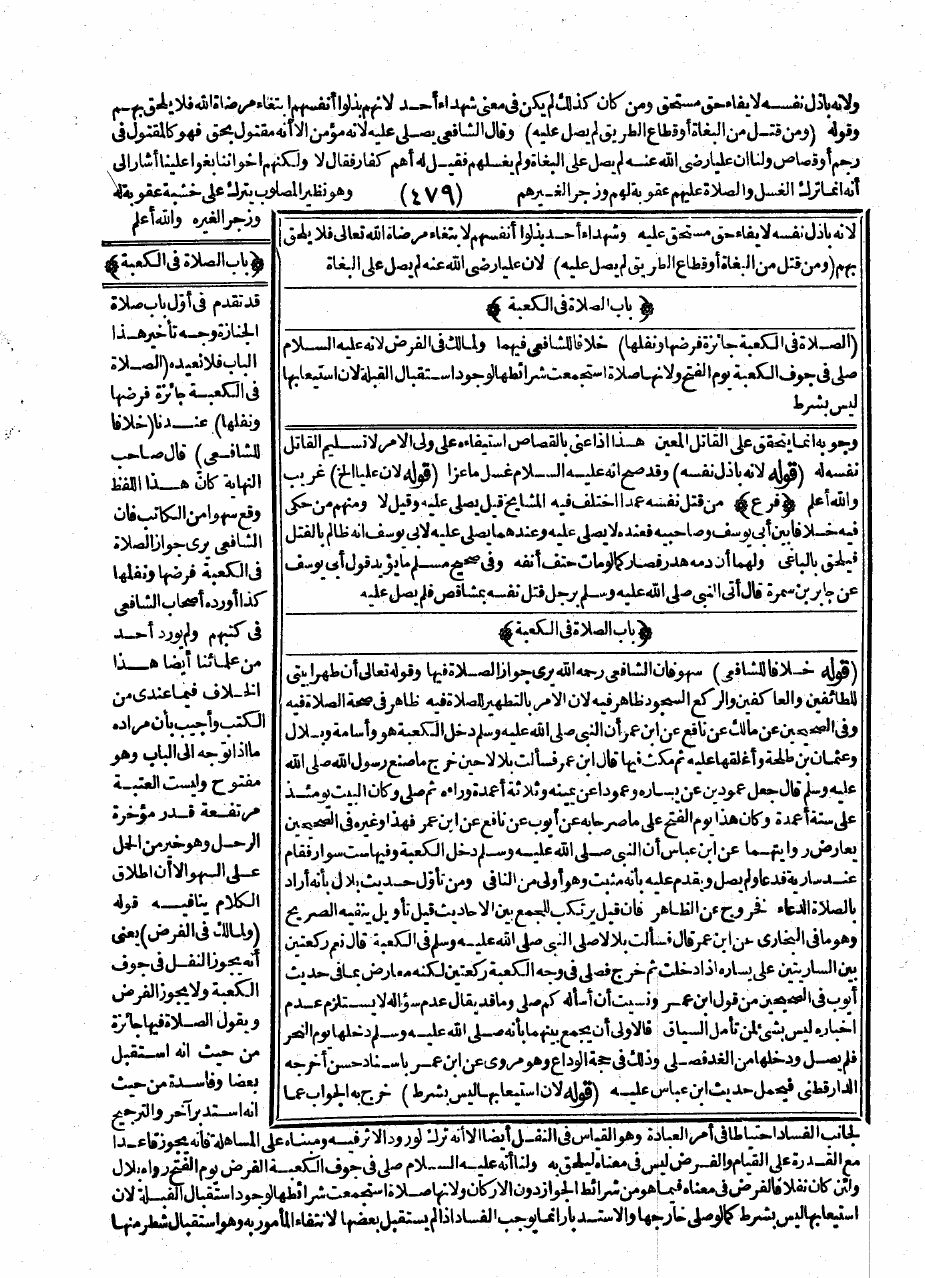 ولانه باذل نفسه لايفاء حق مستحق ومن كان كذلك لم يكن فى معنى شهداء أحد لانهم بذلوا أنفسهم ابتغاء مرضاة الله فلا يلحق بهم
وقوله (ومن قتل من البغاة أو قطاع الطريق لم يصل عليه) وقال الشافعى يصلى عليه لانه مؤمن الا أنه مقتول بحق فهو كالمقتول فى
رجم أو قصاص ولنا ان عليا رضى الله عنه لم يصل على البغاة ولم يغسلهم فقيل له أهم كفار فقال لا ولكنهم اخواننا بغوا علينا أشار الى
أنه انما ترك الغسل والصلاة عليهم عقوبة لهم وزجر الغيرهم (٤٧٩) وهو نظير المصلوب يترك على خشبة عقوبة له
وزجر الغيره والله أعلم
﴿باب الصلاة فى الكعبة﴾
قد تقدم فى أول باب صلاة
الجنازة وجه تأخير هذا
الباب فلا نعيده (الصلاة
فى الكعبة جائزة فرضها
ونفلها) عندنا (خلافا
للشافعى) قال صاحب
النهاية كان هذا اللفظ
وقع سهوا من الكاتب فان
الشافعى يرى جواز الصلاة
فى الكعبة فرضها ونفلها
كذا أورده أصحاب الشافعى
فى كتبهم ولم يورد أحد
من علمائنا أيضا هذا
الخلاف فيما عندى من
الكتب وأجيب بأن مراده
ما اذا توجه الى الباب وهو
مفتوح وليست العتبة
مرتفعة قدر مؤخرة
الرحل وهو خير من الحمل
على السهو الا أن اطلاق
الكلام ينافيه قوله
(ولمالك فى الفرض) يعنى
أنه يجوز النفل فى جوف
الكعبة ولا يجوز الفرض
ويقول الصلاة فيها جائزة
من حيث انه استقبل
بعضا وفاسدة من حيث
انه استدبر آخر والترجيح
لانه باذل نفسه لايفاء حق مستحق عليه وشهداء أحد بذلوا أنفسهم لابتغاء مرضاة الله تعالى فلا يلحق
بهم (ومن قتل من البغاة أو قطاع الطريق لم يصل عليه) لان عليا رضى الله عنه لم يصل على البغاة
﴿باب الصلاة فى الكعبة﴾
(الصلاة فى الكعبة جائزة فرضها ونفلها) خلافا للشافعى فيهما ولمالك فى الفرض لانه عليه السلام
صلى فى جوف الكعبة يوم الفتح ولانها صلاة استجمعت شرائطها لوجود استقبال القبلة لان استيعابها
ليس بشرط
وجوبه انما يتحقق على القاتل المعين هذا اذا عنى بالقصاص استيفاءه على ولى الامر لا تسليم القاتل
نفسه له (قوله لانه باذل نفسه) وقد صح انه عليه السلام غسل ماعزا (قوله لان عليا الخ) غريب
والله أعلم ﴿فرع﴾ من قتل نفسه عمدا اختلف فيه المشايخ قيل يصلى عليه وقيل لا ومنهم من حكى
فيه خلافا بين أبى يوسف وصاحبيه فعنده لا يصلى عليه وعندهما يصلى عليه لابى يوسف انه ظالم بالقتل
فيلحق بالباغى ولهما أن دمه هدر فصار كما لو مات حتف أنفه وفى صحيح مسلم ما يؤيد قول أبى يوسف
عن جابر بن سمرة قال أتى النبى صلى الله عليه وسلم برجل قتل نفسه بمشاقص فلم يصل عليه
﴿باب الصلاة فى الكعبة﴾
(قوله خلافا للشافعى) سهو فان الشافعى رحمه الله يرى جواز الصلاة فيها وقوله تعالى أن طهرا بيتى
للطائفين والعاكفين والركع السجود ظاهر فيه لان الامر بالتطهير للصلاة فيه ظاهر فى صحة الصلاة فيه
وفى الصحيحين عن مالك عن نافع عن ابن عمر أن النبى صلى الله عليه وسلم دخل الكعبة هو وأسامة وبلال
وعثمان بن طلحة وأغلقها عليه ثم مكث فيها قال ابن عمر فسألت بلالا حين خرج ما صنع رسول الله صلى الله
عليه وسلم قال جعل عمودين عن يساره وعمودا عن يمينه وثلاثة أعمدة وراءه ثم صلى وكان البيت يومئذ
على ستة أعمدة وكان هذا يوم الفتح على ما صرحا به عن أيوب عن نافع عن ابن عمر فهذا وغيره فى الصحيحين
يعارض روايتهما عن ابن عباس أن النبى صلى الله عليه وسلم دخل الكعبة وفيها ست سوار فقام
عند سارية فدعا ولم يصل ويقدم عليه بأنه مثبت وهو أولى من النافى ومن تأول حديث بلال بأنه أراد
بالصلاة الدعاء فخروج عن الظاهر فان قيل يرتكب للجمع بين الاحاديث قيل تأويل ينفيه الصريح
وهو ما فى البخارى عن ابن عمر قال فسألت بلالا صلى النبى صلى الله عليه وسلم فى الكعبة قال نعم ركعتين
بين الساريتين على يساره اذا دخلت ثم خرج فصلى فى وجه الكعبة ركعتين لكنه معارض بما فى حديث
أيوب فى الصحيحين من قول ابن عمر ونسيت أن أسأله كم صلى وما قد يقال عدم سؤاله لا يستلزم عدم
اخباره ليس بشئ لمن تأمل السياق فالاولى أن يجمع بينهما بأنه صلى الله عليه وسلم دخلها يوم النحر
فلم يصل ودخلها من الغد فصلى وذلك فى حجة الوداع وهو مروى عن ابن عمر باسناد حسن أخرجه
الدارقطنى فيحمل حديث ابن عباس عليه (قوله لان استيعابها ليس بشرط) خرج به الجواب عما
لجانب الفساد احتياطا فى أمر العبادة وهو القياس فى النفل أيضا الا أنه ترك لورود الاثر فيه ومبناه على المساهلة فانه يجوز قاعدا
مع القدرة على القيام والفرض ليس فى معناه ليلحق به ولنا أنه عليه السلام صلى فى جوف الكعبة الفرض يوم الفتح رواه بلال
ولئن كان نفلا فالفرض فى معناه فيما هو من شرائط الجواز دون الاركان ولانها صلاة استجمعت شرائطها لوجود استقبال القبلة لان
استيعابها ليس بشرط كما لو صلى خارجها والاستدبار انما يوجب الفساد اذا لم يستقبل بعضها لانتفاء المأمور به وهو استقبال شطر منها